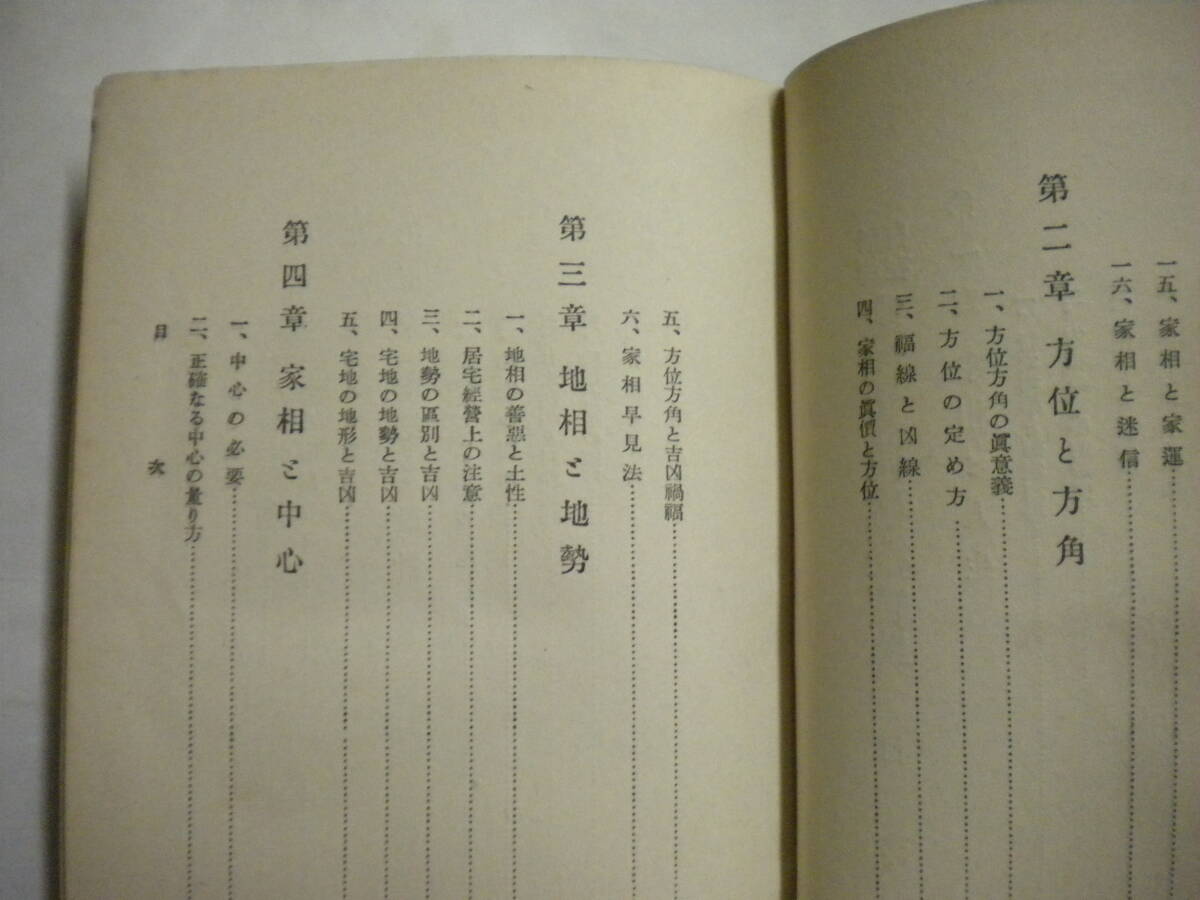 一五、家相と家運
一六、家相と迷信
第二章 方位と方角
一、方位方角の眞意義
二、方位の定め方
三、福線と凶線
四、家相の眞價と方位
五、方位方角と吉凶禍福
六、家相早見法
第三章 地相と地勢
一、地相の善惡と土性
二、居宅經營上の注意
三、地勢の區別と吉凶
四、宅地の地勢と吉凶
五、宅地の地形と吉凶
第四章 家相と中心
一、中心の必要
二、正確なる中心の量り方
目次